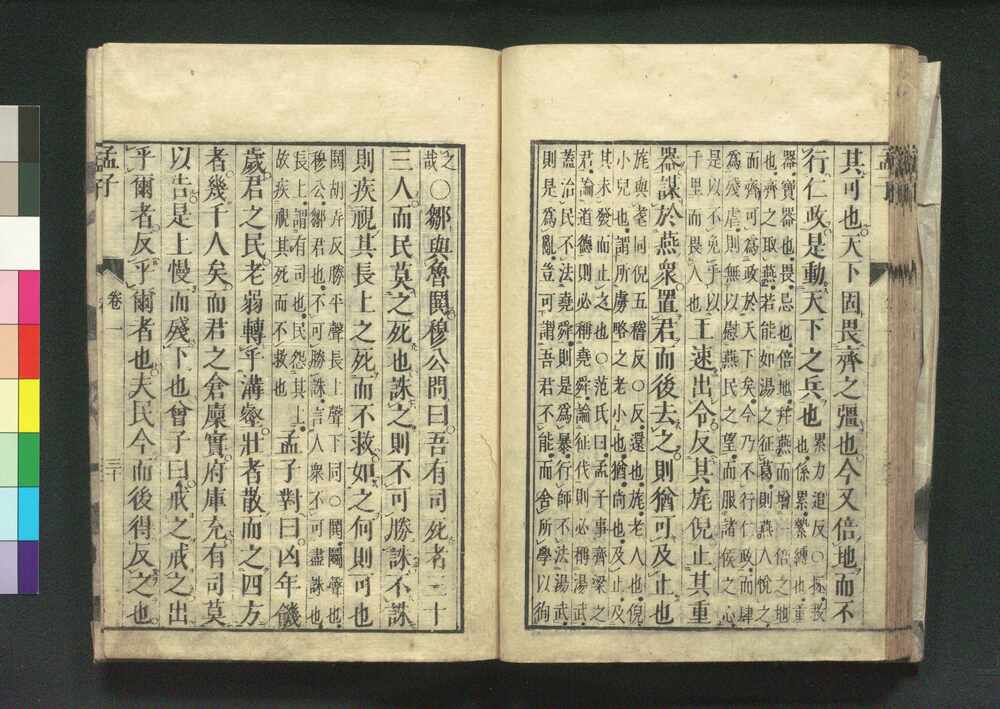 孟子
其可也天下固畏齊之彊也今又倍地而不
行仁政是動天下之兵也
累力追反○拯救
也係累縶縛也重
器寶器也畏忌也倍地幷燕而增一倍之地
也齊之取燕若能如湯之征葛則燕人悅之
而齊可爲政於天下矣今乃不行仁政而肆
爲殘虐則無以慰燕民之望而服諸侯之心
是以不免乎以
千里而畏人也
王速出令反其旄倪止其重
器謀於燕衆置君而後去之則猶可及止也
旄與耄同倪五稽反○反還也旄老人也倪
小兒也謂所虜略之老小也猶尙也及止及
其未發而止之也○范氏曰孟子事齊梁之
君論道德則必稱堯舜論征伐則必稱湯武
蓋治民不法堯舜則是爲暴行師不法湯武
則是爲亂豈可謂吾君不能而舍所學以徇
之
哉
○鄒與魯鬨穆公問曰吾有司死者三十
三人而民莫之死也誅之則不可勝誅不誅
則疾視其長上之死而不救如之何則可也
鬨胡弄反勝平聲長上聲下同○鬨鬬聲也
穆公鄒君也不可勝誅言人衆不可盡誅也
長上謂有司也民怨其上
故疾視其死而不救也
孟子對曰凶年饑
歲君之民老弱轉乎溝壑壯者散而之四方
者幾千人矣而君之倉廩實府庫充有司莫
以告是上慢而殘下也曾子曰戒之戒之出
乎爾者反乎爾者也夫民今而後得反之也
孟子
卷一
三十